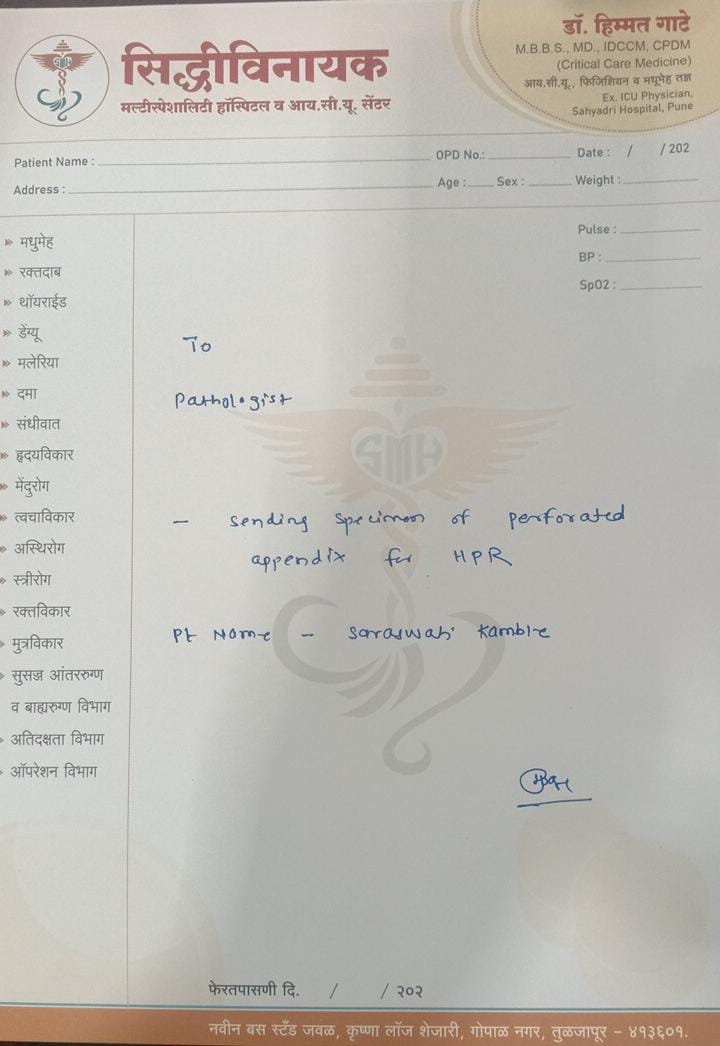 सिद्धीविनायक
मल्टीस्पेशालिटी हॉस्पिटल व आय.सी.यू. सेंटर
डॉ. हिम्मत गाटे
M.B.B.S., MD., IDCCM, CPDM
(Critical Care Medicine)
आय.सी.यू., फिजिशियन व मधूमेह तज्ञ
Ex. ICU Physician,
Sahyadri Hospital, Pune
Patient Name : OPD No.: Date : / / 202
Address : Age : Sex : Weight :
Pulse :
BP :
SpO2 :
» मधुमेह
» रक्तदाब
» थॉयराईड
» डेंग्यू
» मलेरिया
» दमा
» संधीवात
» हृदयविकार
» मेंदुरोग
» त्वचाविकार
» अस्थिरोग
» स्त्रीरोग
» रक्तविकार
» मुत्रविकार
» सुसज्ज आंतररुग्ण
व बाह्यरुग्ण विभाग
» अतिदक्षता विभाग
» ऑपरेशन विभाग
To
Pathologist
SMH
- sending specimen of perforated
appendix for HPR
Pt Name - Saraswati Kamble
फेरतपासणी दि. / / २०२
नवीन बस स्टँड जवळ, कृष्णा लॉज शेजारी, गोपाळ नगर, तुळजापूर - ४१३६०१.